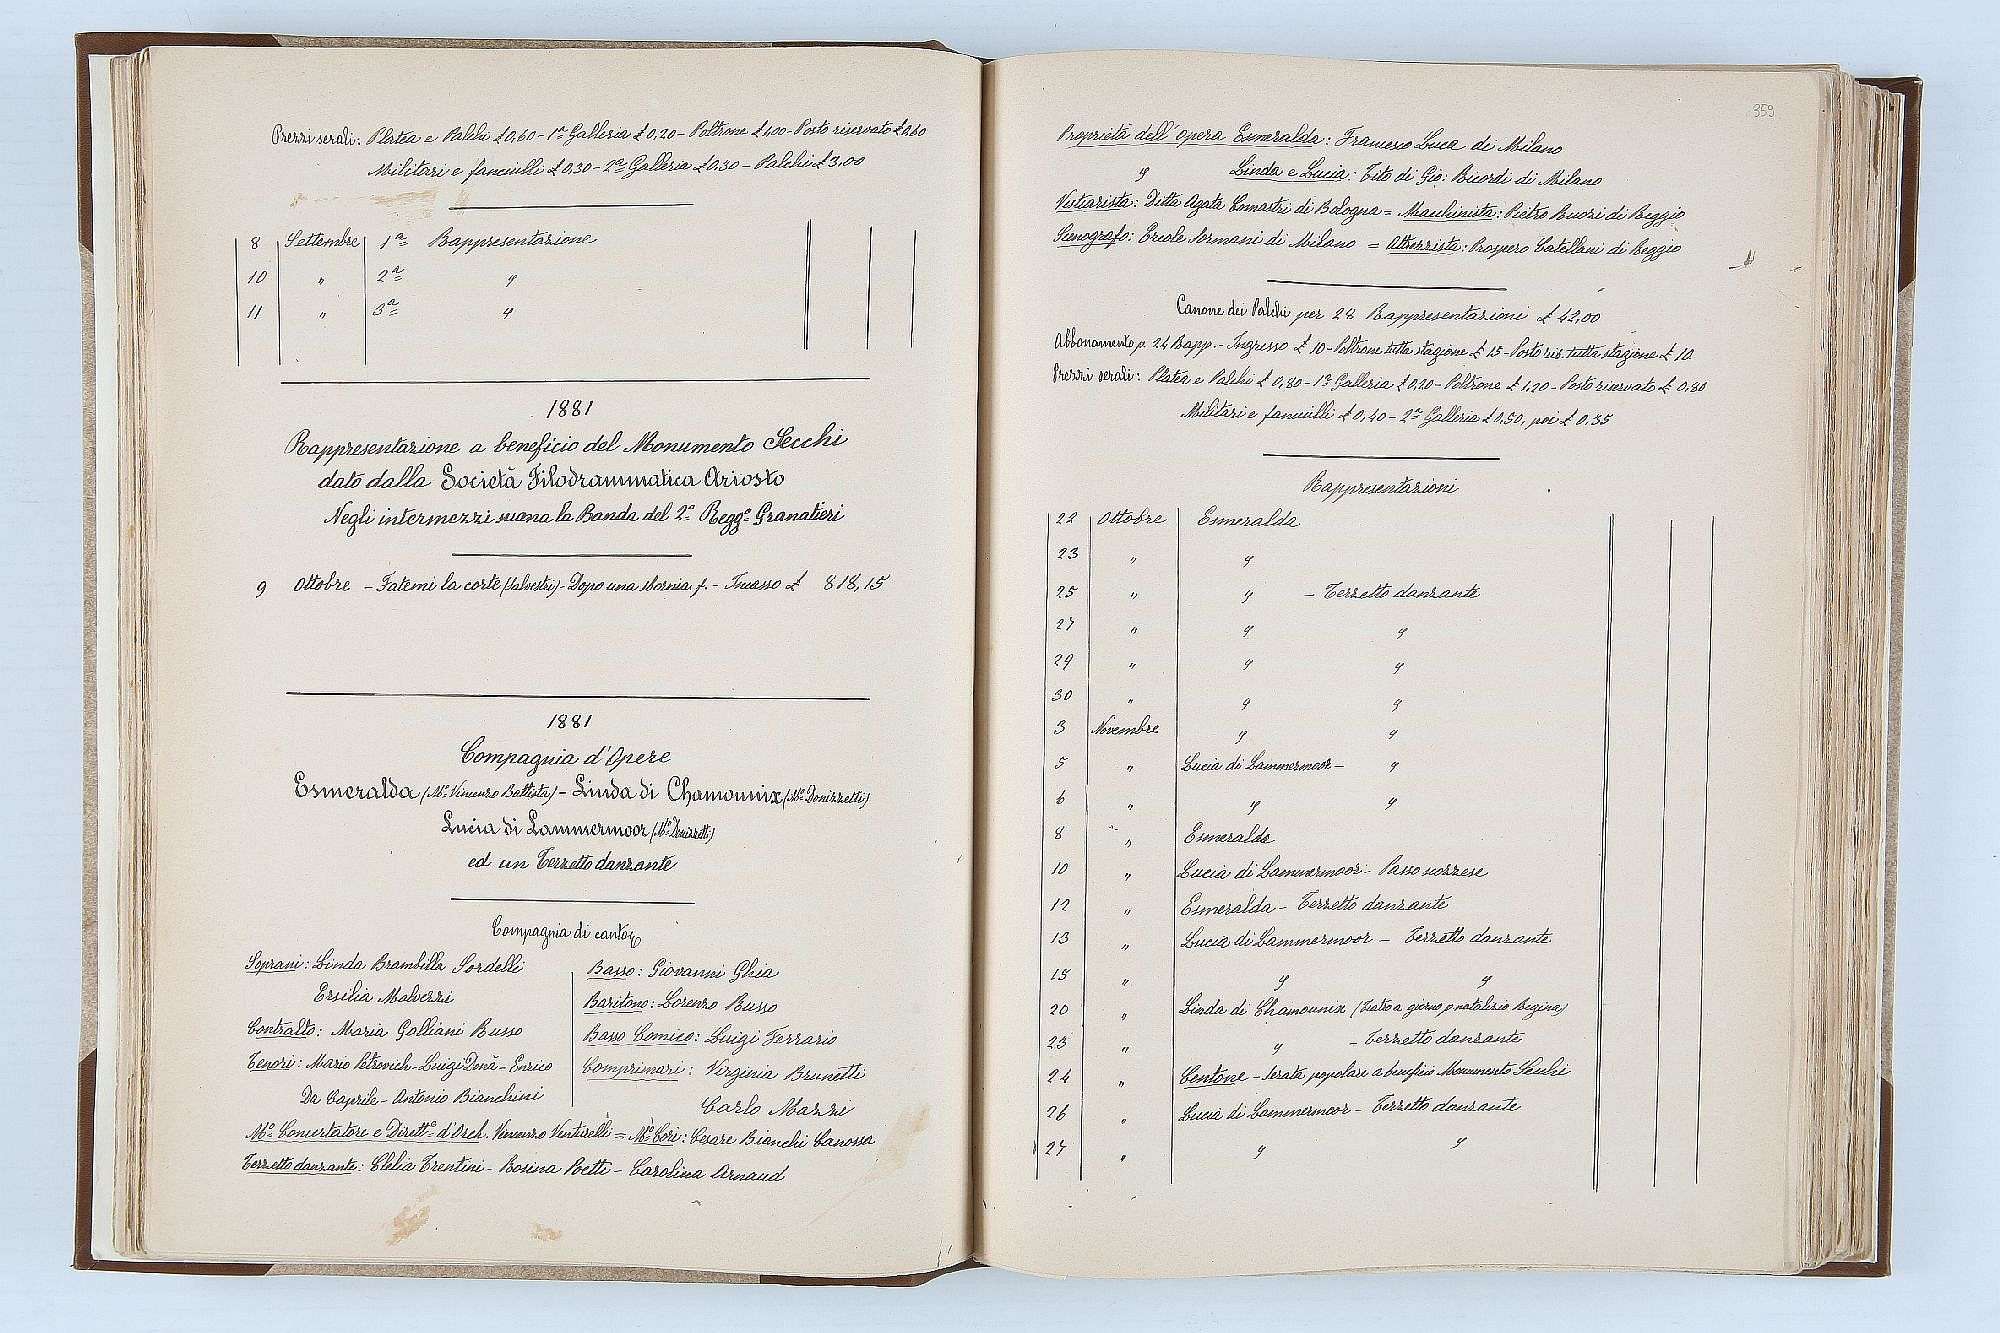 Prezzi serali: Platea e Palchi £ 0,60 - 1ª Galleria £ 0,20 - Poltrone £ 1,00 - Posto riservato £ 0,60
Militari e fanciulli £ 0,30 - 2ª Galleria £ 0,30 - Palchi £ 3,00
8 Settembre 1ª Rappresentazione
10 " 2ª "
11 " 3ª "
1881
Rappresentazione a beneficio del Monumento Secchi
dato dalla Società Filodrammatica Ariosto
Negli intermezzi suona la Banda del 2º Reggº Granatieri
9 Ottobre - Fatemi la corte (Salvestri) - Dopo una sbornia f. - Incasso £ 818,15
1881
Compagnia d'Opere
Esmeralda (Mº Vincenzo Battista) - Linda di Chamounix (Mº Donizzetti)
Lucia di Lammermoor (Mº Donizzetti)
ed un Terzetto danzante
Compagnia di canto
Soprani: Linda Brambilla Sordelli
Ersilia Malvezzi
Contralto: Maria Galliani Russo
Tenori: Mario Petrovich - Luigi Donà - Enrico
Da Caprile - Antonio Bianchini
Basso: Giovanni Ghia
Baritono: Lorenzo Russo
Basso Comico: Luigi Ferrario
Comprimari: Virginia Brunetti
Carlo Mazzi
Mº Concertatore e Direttº d'Orch. Vincenzo Ventirelli = Mº Cori: Cesare Bianchi Canossa
Terzetto danzante: Clelia Trentini - Rosina Poetti - Carolina Arnaud
359
Proprietà dell'opera Esmeralda: Francesco Luca di Milano
" Linda e Lucia: Tito di Gio: Ricordi di Milano
Vestiarista: Ditta Agata Ennastri di Bologna = Macchinista: Pietro Ruozi di Reggio
Scenografo: Ercole Sormani di Milano = Attrezzista: Prospero Catellani di Reggio
Canone dei Palchi per 28 Rappresentazioni £ 42,00
Abbonamento p. 24 Rapp. - Ingresso £ 10 - Poltrone tutta stagione £ 15 - Posto ris. tutta stagione £ 10
Prezzi serali: Platea e Palchi £ 0,80 - 1ª Galleria £ 0,20 - Poltrone £ 1,20 - Posto riservato £ 0,80
Militari e fanciulli £ 0,40 - 2ª Galleria £ 0,50, poi £ 0,35
Rappresentazioni
22 Ottobre Esmeralda
23 " "
25 " " - Terzetto danzante
27 " " "
29 " " "
30 " " "
3 Novembre " "
5 " Lucia di Lammermoor - "
6 " " "
8 " Esmeralda
10 " Lucia di Lammermoor - Passo nozzese
12 " Esmeralda - Terzetto danzante
13 " Lucia di Lammermoor - Terzetto danzante
15 " " "
20 " Linda di Chamounix (Teatro a giorno p natalizio Regina)
23 " " - Terzetto danzante
24 " Centone - Serata popolare a beneficio Monumento Secchi
26 " Lucia di Lammermoor - Terzetto danzante
27 " " "